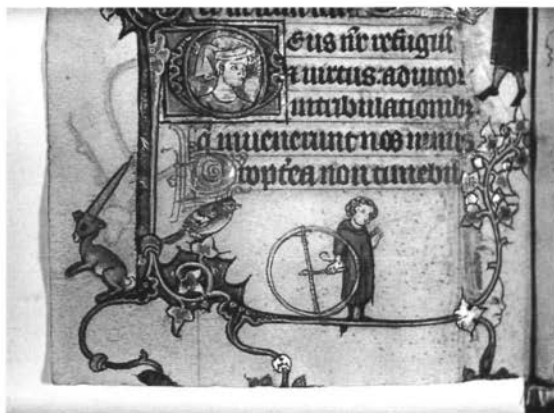 Deus nr̄ refugiū
uirtus: adiutor
intribulationib
q̄ inuenerunt nos nimis
Propt̄ea non timeb